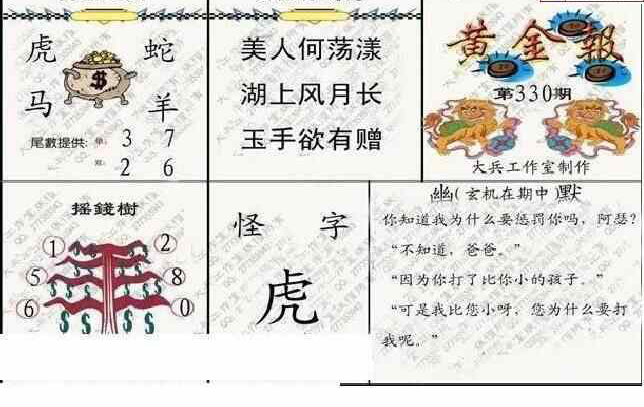 虎 蛇
$
马 羊
尾數提供: 单: 3 7
双: 2 6
美人何荡漾
湖上风月长
玉手欲有赠
黄金報
第330期
大兵工作室制作
摇錢樹
1 2
5 8
6 0
怪 字
虎
幽(玄机在期中)默
你知道我为什么要惩罚你吗，阿瑟?
“不知道，爸爸。”
“因为你打了比你小的孩子。”
“可是我比您小呀，您为什么要打
我呢。”